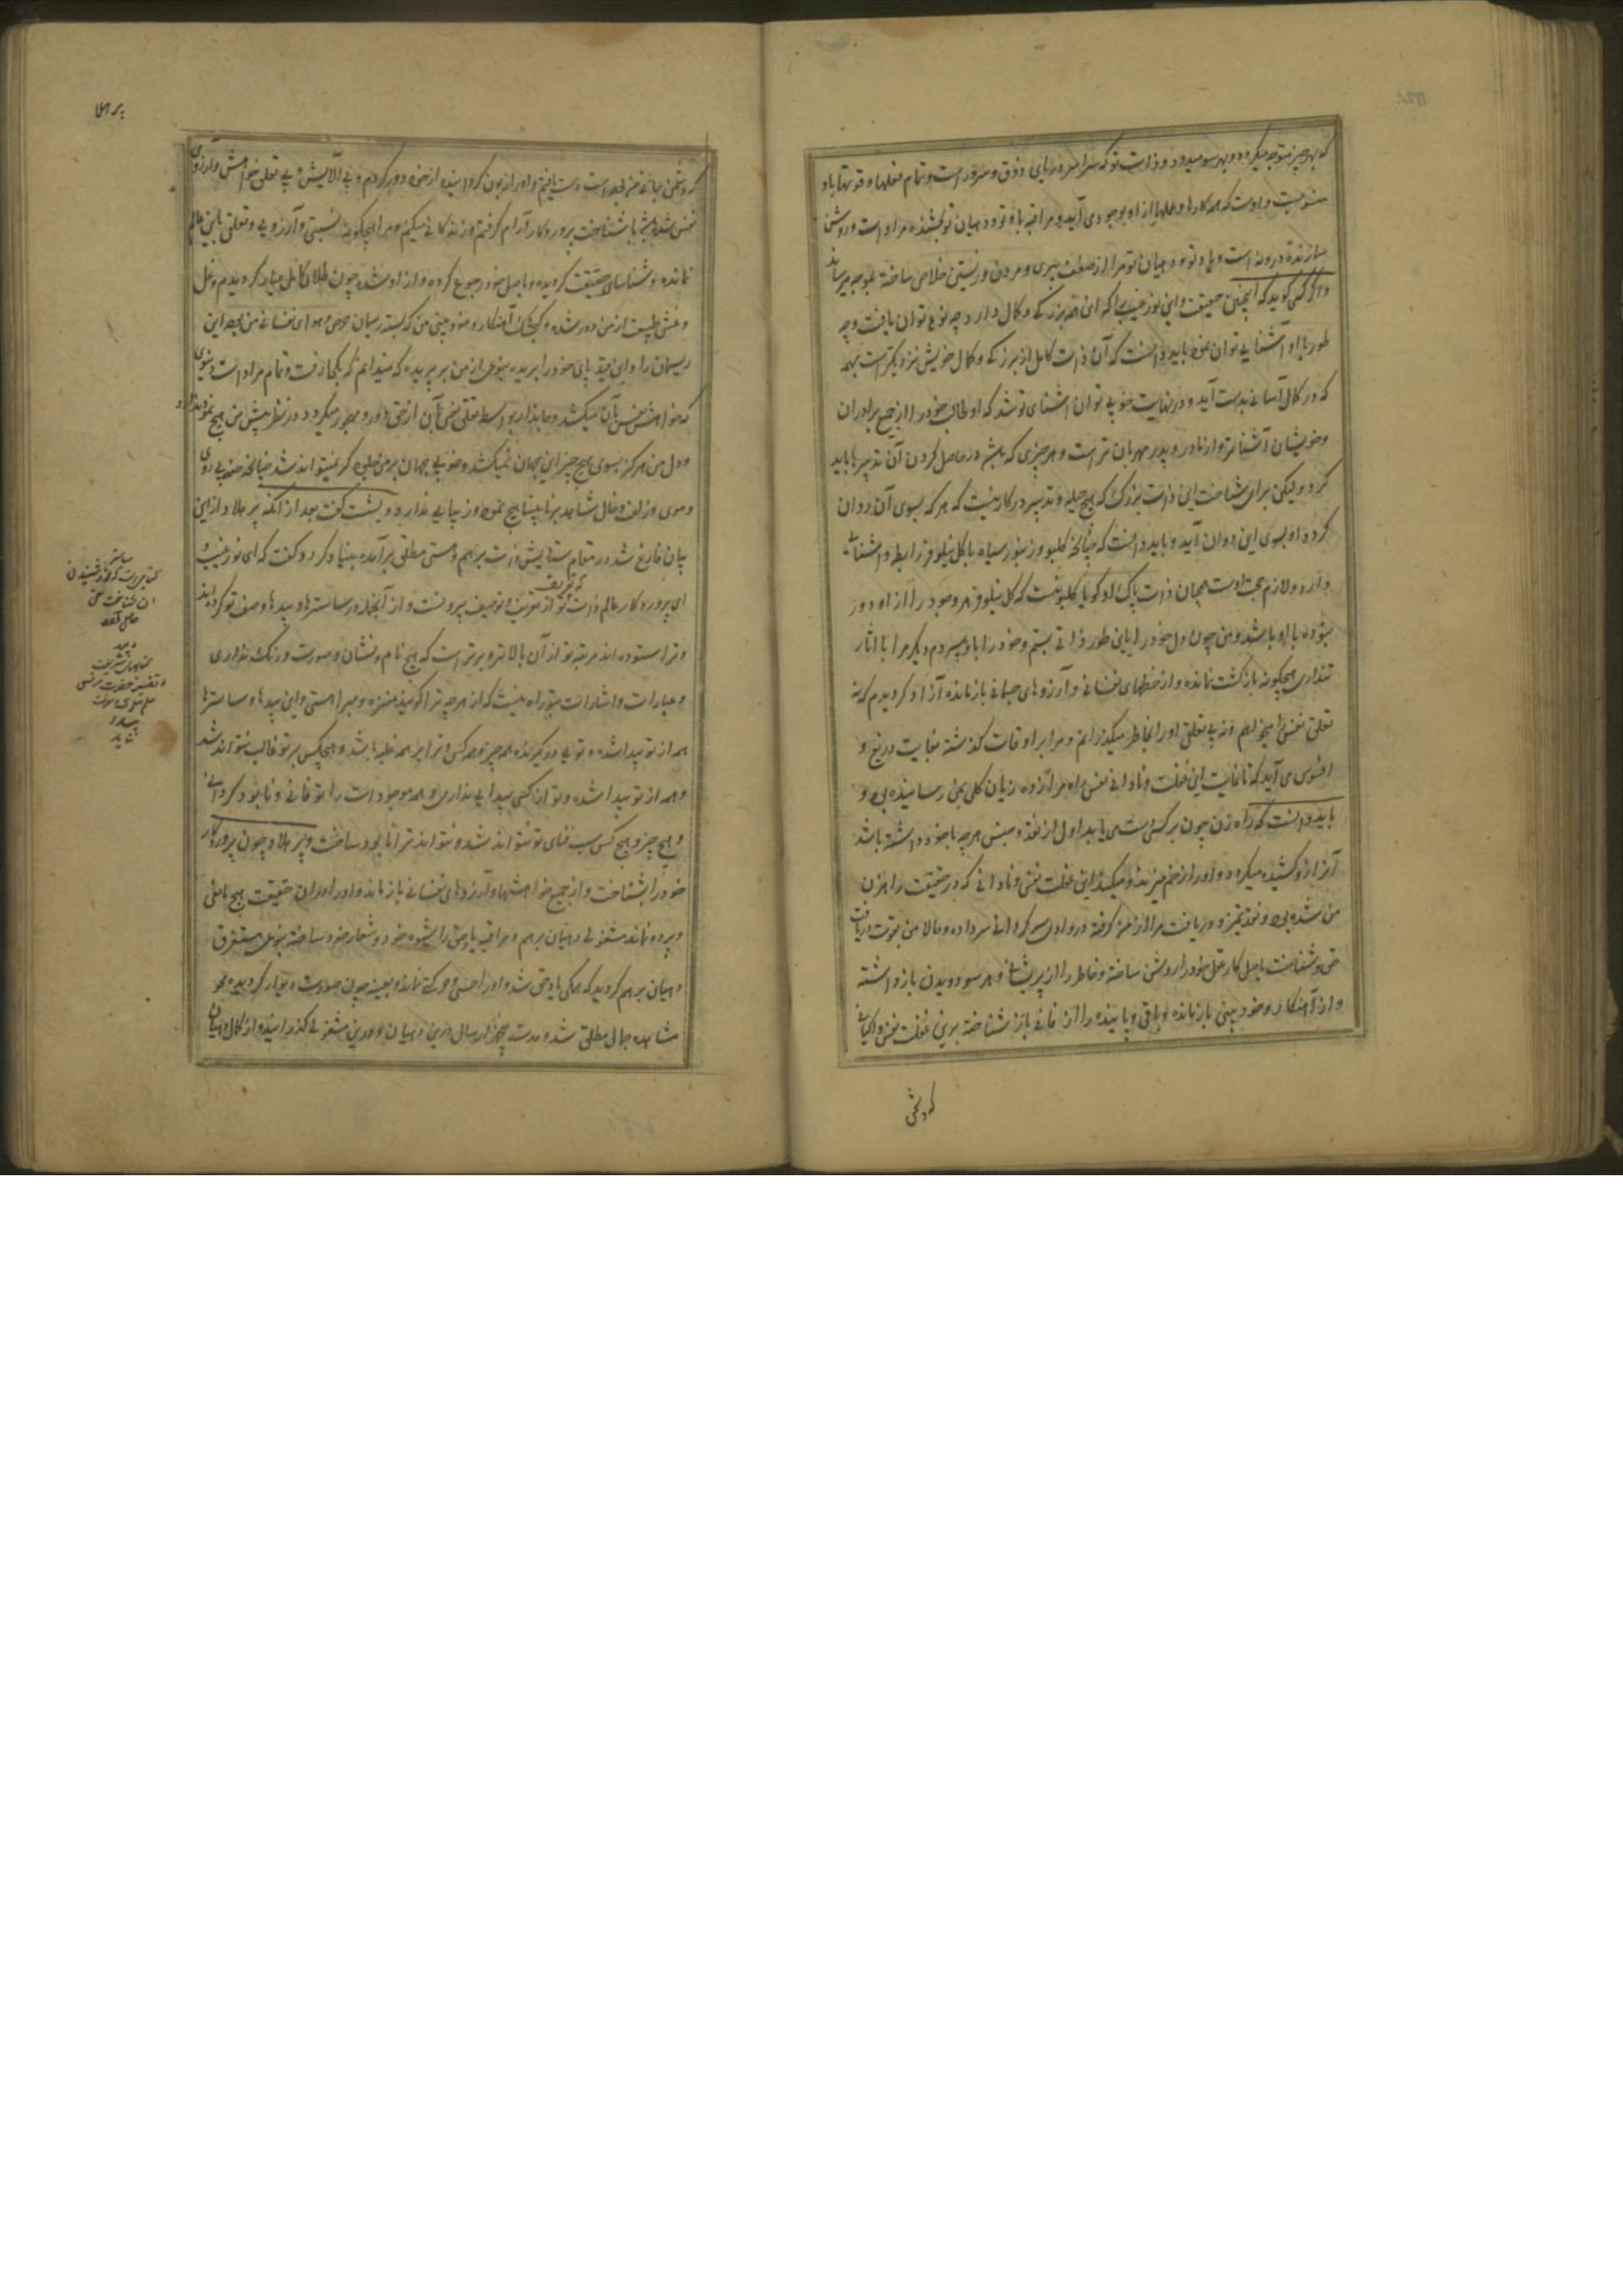 که بهر چیز متوجه میگردد و بهر سو میدود و ذات تو که سراسر دریای ذوق و سرور است و تمام فعلها و قوتها باو
منسوبست و اوست که همه کارها و عملها از او بوجود می آید و مراقبه با و تو و دهیان تو بخشنده مراد است و روشن
سازنده درونه است و یاد تو و دهیان تو مرا از صفت پیری و مردن و زیستن خلاص ساخته
و اگر کسی گوید که اینچنین حقیقت و این نور غیب را که این همه بزرگی و کمال دارد چه نوع توان یافت و چه
طور با او آشنایی توان نمود باید دانست که آن ذات کامل از بزرگی و کمال خویش نزدیکتر است بهمه
که در کمال آسانی بدست آید و در نهایت خوبی توان آشنای تو شد که او طالب خود را از جمیع برادران
و خویشان آشناتر و از مادر و پدر مهربان تر است و هر چیزی که باشد در حاصل کردن آن تدبیرها باید
کرد و لیکن برای شناخت این ذات بزرگ که هیچ حیله و تدبیر درکار نیست که هر که بسوی آن روان
گردد او بسوی این دوان آید و باید دانست که چنانچه زنبور سیاه با گل نیلوفر رابطه و آشنایی
دارد و لازم محبت اوست همچنان ذات پاک او گویا که گل نیلوفر وجود را از او دور
نبوده با او باشد و من چون دل خود را باین طور ذاتی بستم و خود را باو سپردم دیگر مرا با اثار
پنداری هیچگونه بازگشت نمانده و از حظهای نفسانی و آرزوهای جسمانی باز مانده آزاد گردیدم که نه
تعلق نفس را میخواهم و نه بی تعلقی او را بخاطر میگذرانم و مرا بر اوقات گذشته بغایت دریغ و
افسوس می آید که تا غایت این غفلت و نادانی نفس راه مرا زده زیان کلی بمن رسانیده بود و
باید دانست که راه زن چون بر کسی دست می یابد اول از نقد و جنس هر چه با خود داشته باشد
آنرا ازو کشیده میگیرد و او را زخم میزند و میکشد این غفلت نفس و نادانی که در حقیقت راهزن
من شده بود و نقد تمیز و دریافت مرا از من گرفته در وادی سرگردانی سر داده و حالا من بقوت دریافت
حق و شناخت باصل کار عقل خود را روشن ساخته و خاطر را از پریشانی و هر سو دویدن باز داشته
و از آهنکار و خود بینی باز مانده و باقی و پاینده را از فانی باز شناخته برین غفلت نفس و
که دشمن
که دشمن جانی من بود است دست یافتم و او را زبون گردانیده از خود دور کردم و بی آلایش و بی تعلق خواهش و آرزوی
نفس شده همیشه با شناخت پروردگار آرام گرفتم و زندگانی میکنم و مرا هیچگونه نسبتی و آرزویی و تعلقی باین عالم
نمانده و شناسای حقیقت گردیده و باصل خود رجوع کرده و از او شده چون طلای کامل عیار گردیدم و غل
و غش طبیعت از من دور شده و گنجشک آهنکار و خود بینی من که بسته ریسمان حرص و هوای نفسانی من بود این
ریسمان را و این قید پای خود را بریده بنوعی از من بر پریده که نمیدانم که بکجا رفت و تمام مراد است دنیوی
که خواهش نفس بآن میکشد و ما بذار بواسطه تعلق نفس بآن از حق دور و مهجور میگردد در نظر پیش من هیچ نمود ندارد
و دل من هرگز بسوی هیچ چیز این جهان نمیکشد و خوبی جهان بر من جلوه گر نمیتواند شد چنانچه خوبی روی
و موی و زلف و خال شاهد بر نابینا هیچ نمود و زیبایی ندارد و بشست گفت بعد از آنکه پرهلاد از این
بیان فارغ شد در مقام ستایش ذات برهم و هستی مطلق بر آمده بنیاد کرد و گفت که ای نور غیب و
ای پروردگار عالم ذات تو از تعریف و توصیف بیرونست و از آنچه در ساسترها و بیدها وصف تو کرده اند
که تعریف
و ترا ستوده اند مرتبه تو از آن بالاتر و برتر است که هیچ نام و نشان و صورت و رنگ نداری
و عبارات و اشارات بتو راه نیست که از هر چه ترا گویند منزه و مبرا هستی و این بیدها و ساسترها
همه از تو پیدا شده و تویی در گیرنده همه چیز و همه کس و ترا بر همه غلبه باشد و هیچکس بر تو غالب نتواند شد
و همه از تو پیدا شده و تو از کسی پیدایی نداری و همه موجودات را تو فانی و نابود گردانی
و هیچ چیز و هیچ کس سبب فنای تو نتواند شد و نتواند ترا نابود ساخت و پرهلاد چون پروردگار
خود را بشناخت و از جمیع خواهشها و آرزوهای نفسانی باز ماند و او را در آن حقیقت هیچ مانعی
و پرده نماند مشغولی دهیان برهم و مراقبه یاد حق را شیوه خود و شعار خود ساخته بنوعی مستغرق
دهیان برهم گردید که همگی یاد حق شد و او را حس و حرکت نمانده و بعینه چون صورت دیوار گردیده محو
مشاهده جمال مطلق شد و مدت پنج هزار سال درین دهیان و درین مشغولی گذرانید و از کمال دهیان
ساستر